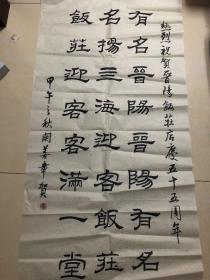 熱烈祝贺晋陽飯莊店慶五十五周年
有名晉陽晉陽有名
名揚三海迎客飯莊
飯莊迎客客滿一堂
甲午之秋善章贺